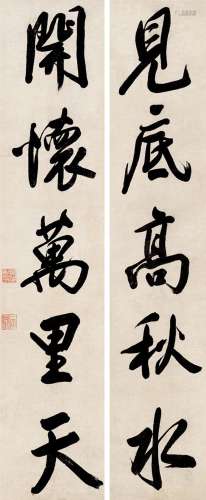 見底高秋水
開懷萬里天